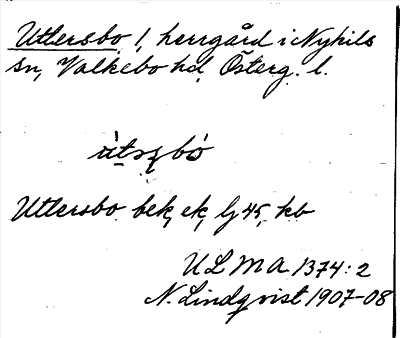 Utlersbo 1, herrgård i Nykils
sn, Valkebo hd, Österg. l.
Utlersbo bek, ek, lj 45, kb
ULMA 1374:2
N. Lindqvist 1907-08